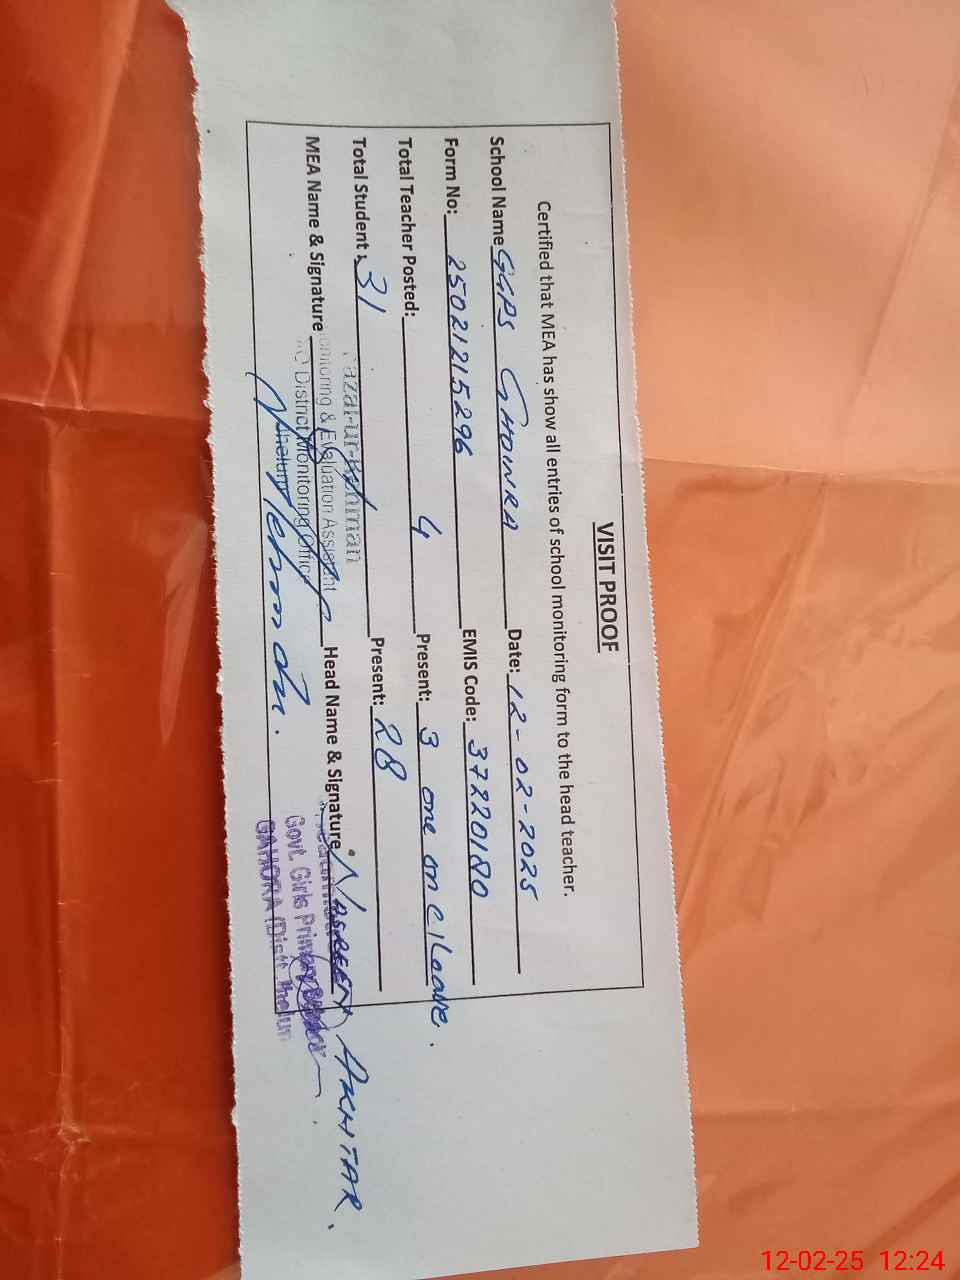 VISIT PROOF
Certified that MEA has show all entries of school monitoring form to the head teacher.
School Name GGPS GHOWRA Date: 12-02-2025
Form No: 25021215296 EMIS Code: 37220180
Total Teacher Posted: 4 Present: 3 one on c/Leave.
Total Student: 31 Present: 28
MEA Name & Signature Head Name & Signature NASREEN AKHTAR.
azal-ur-Rehman
onitoring & Evaluation Assistant
District Monitoring Office
Jhelum
Govt. Girls Primary
GAHORA (Distt. Jhelum
12-02-25 12:24